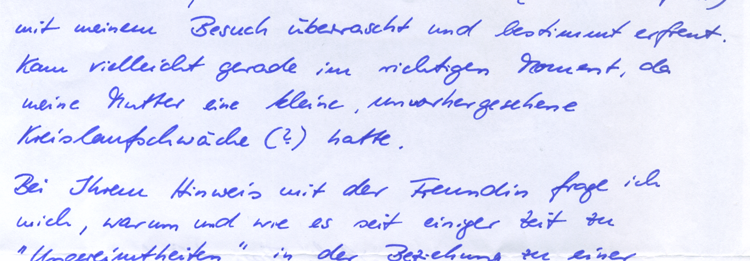 mit meinem Besuch überrascht und bestimmt erfreut.
Kam vielleicht gerade im richtigen Moment, da
meine Mutter eine kleine, unvorhergesehene
Kreislaufschwäche (?) hatte.
Bei Ihrem Hinweis mit der Freundin frage ich
mich, warum und wie es seit einiger Zeit zu
"Ungereimtheiten" in der Beziehung zu einer